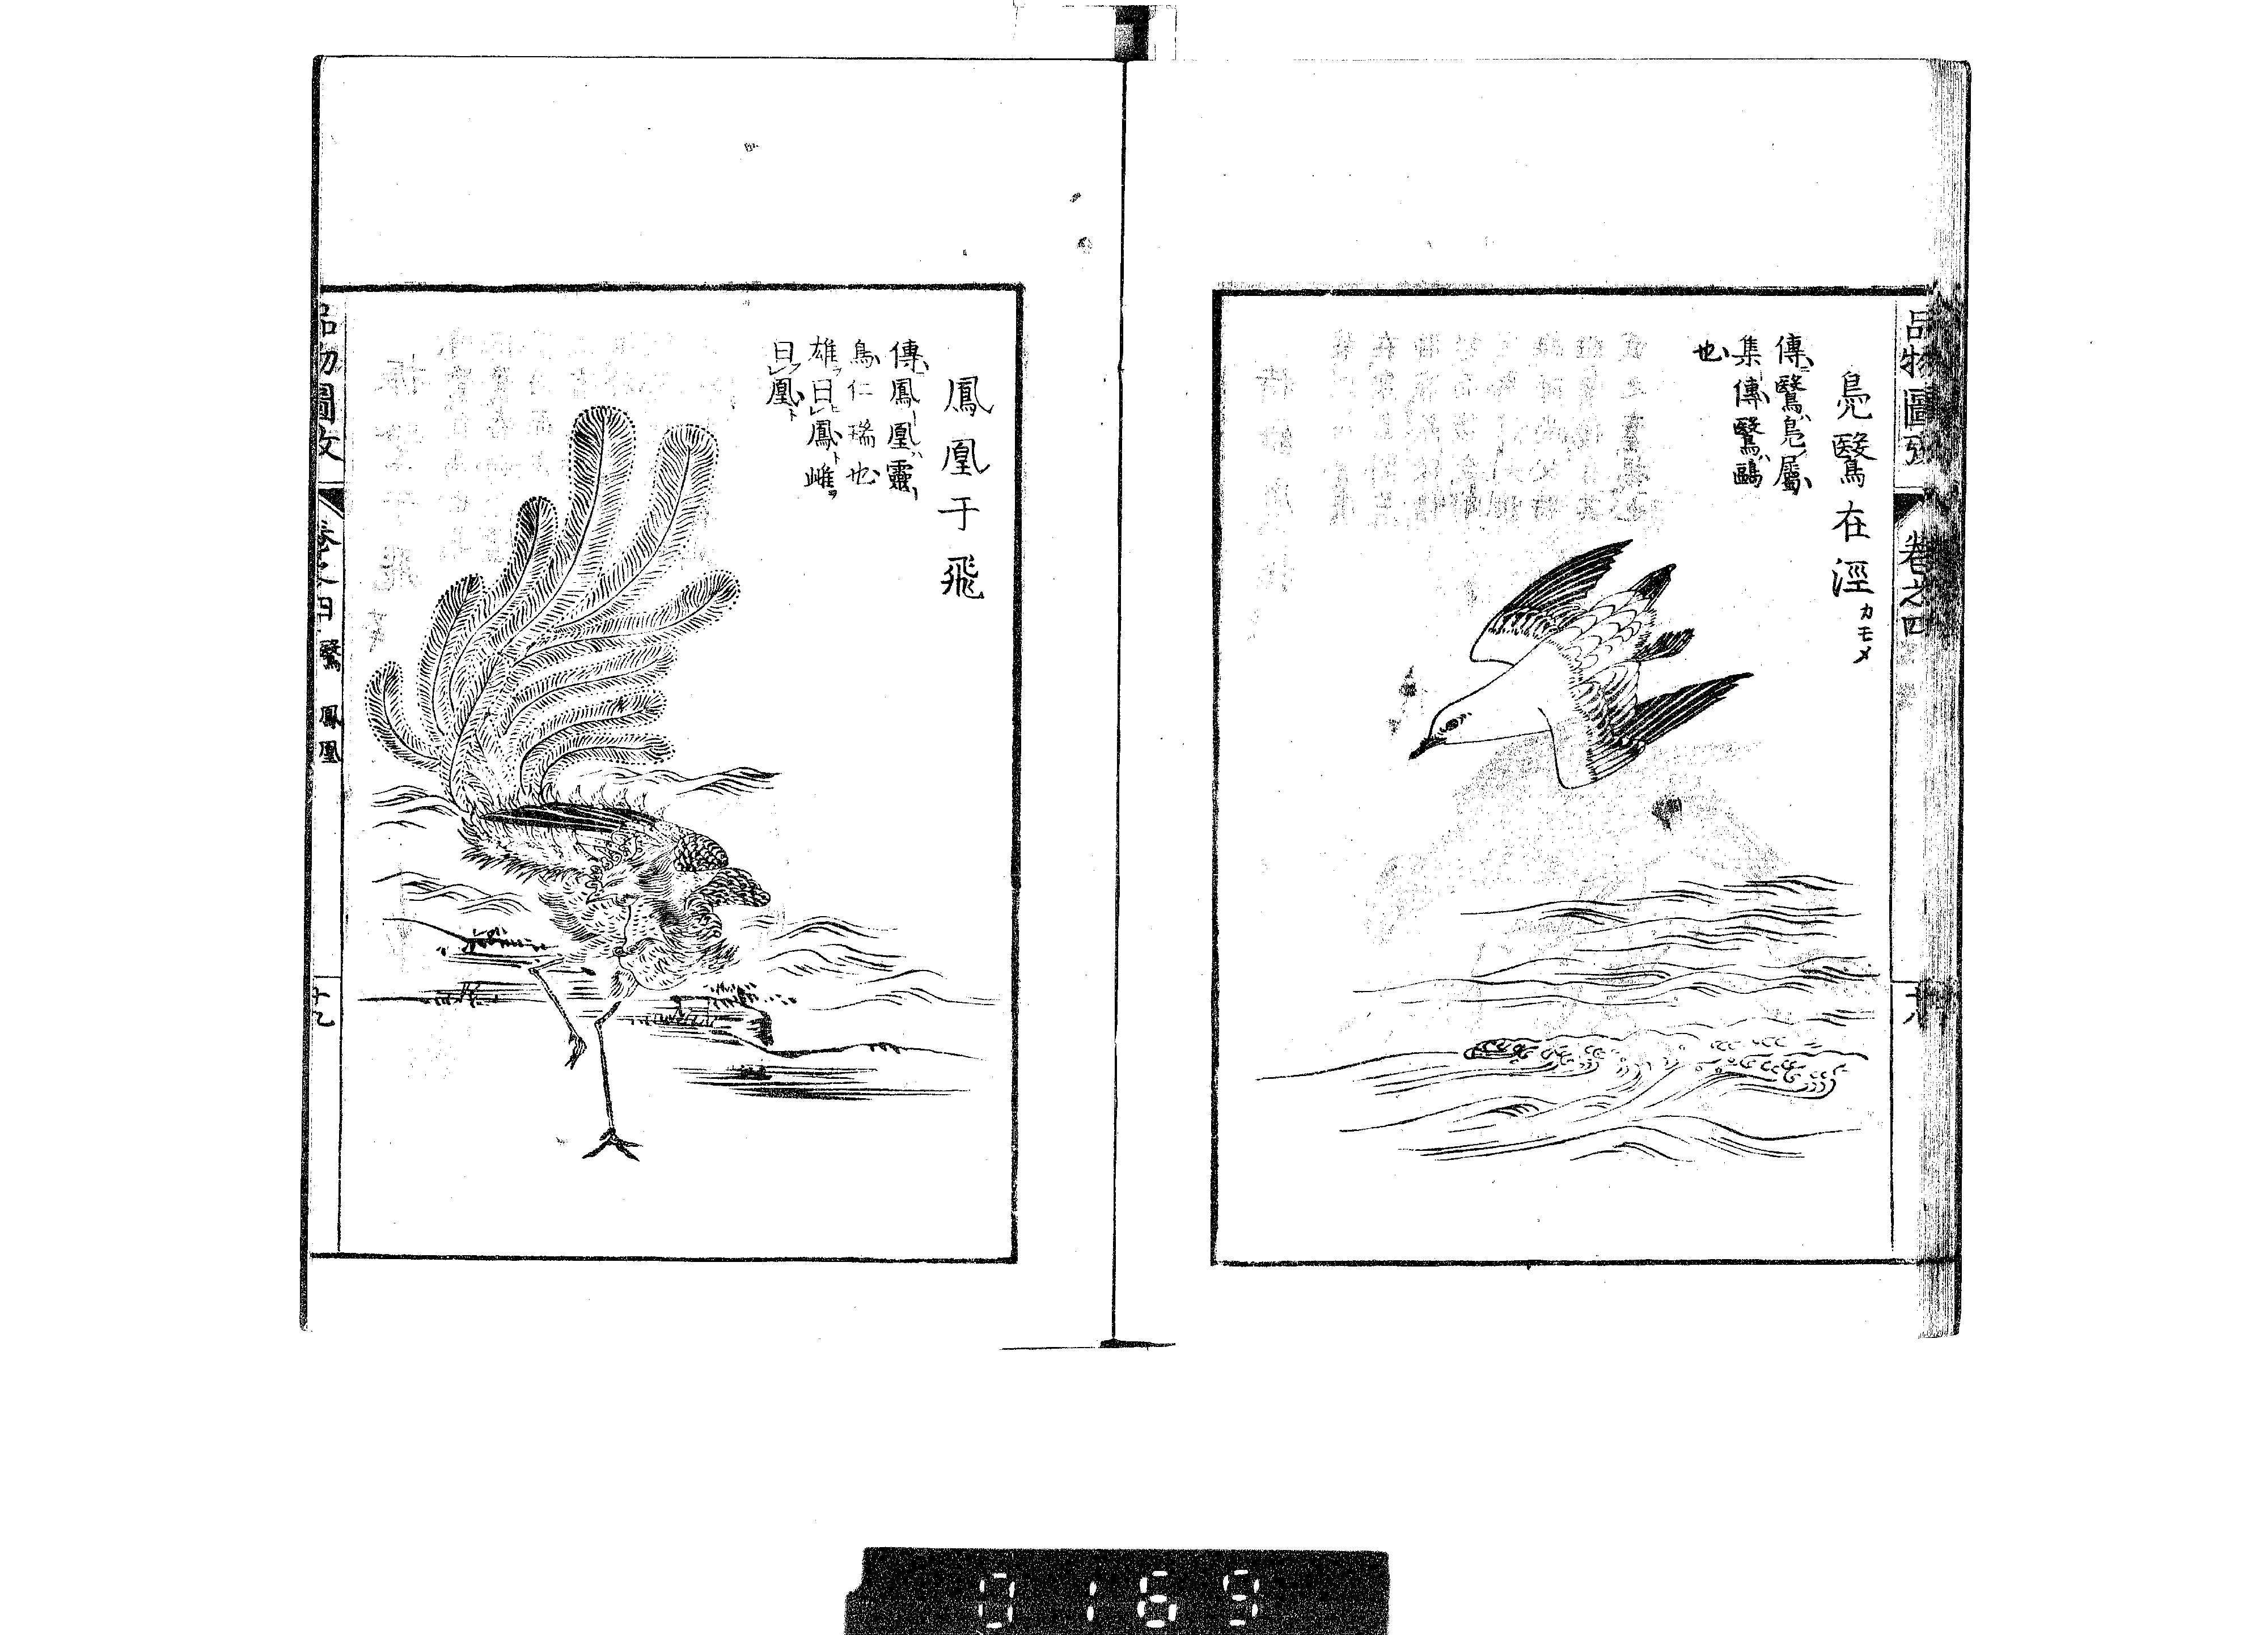 品物圖攷
卷之四
十八
鳧鷖在涇 カモメ
傳鷖鳧屬
集傳鷖鷗
也
鳳凰于飛
傳鳳凰靈
鳥仁瑞也
雄曰鳳雌
曰凰
品物圖攷
卷之四 鷖 鳳凰
十九
0169